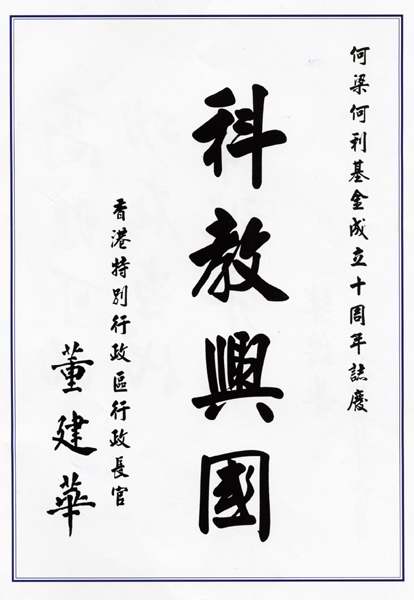 何梁何利基金成立十周年誌慶
科教興國
香港特別行政區行政長官
董建華